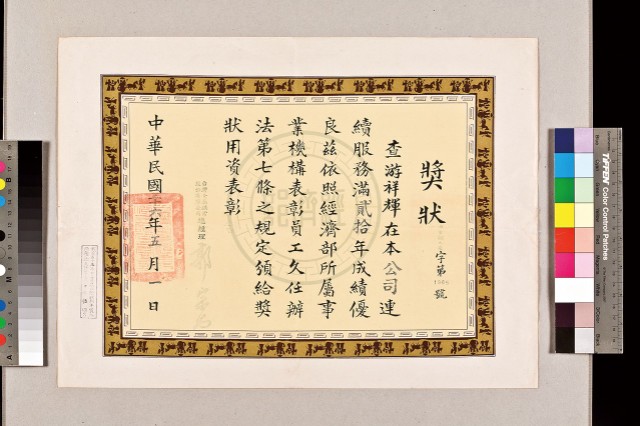 獎狀
字第 號
查游祥輝在本公司連
續服務滿貳拾年成績優
良茲依照經濟部所屬事
業機構表彰員工久任辦
法第七條之規定頒給獎
狀用資表彰
總經理
中華民國 六年五月一日
TIFFEN Color Control Patches